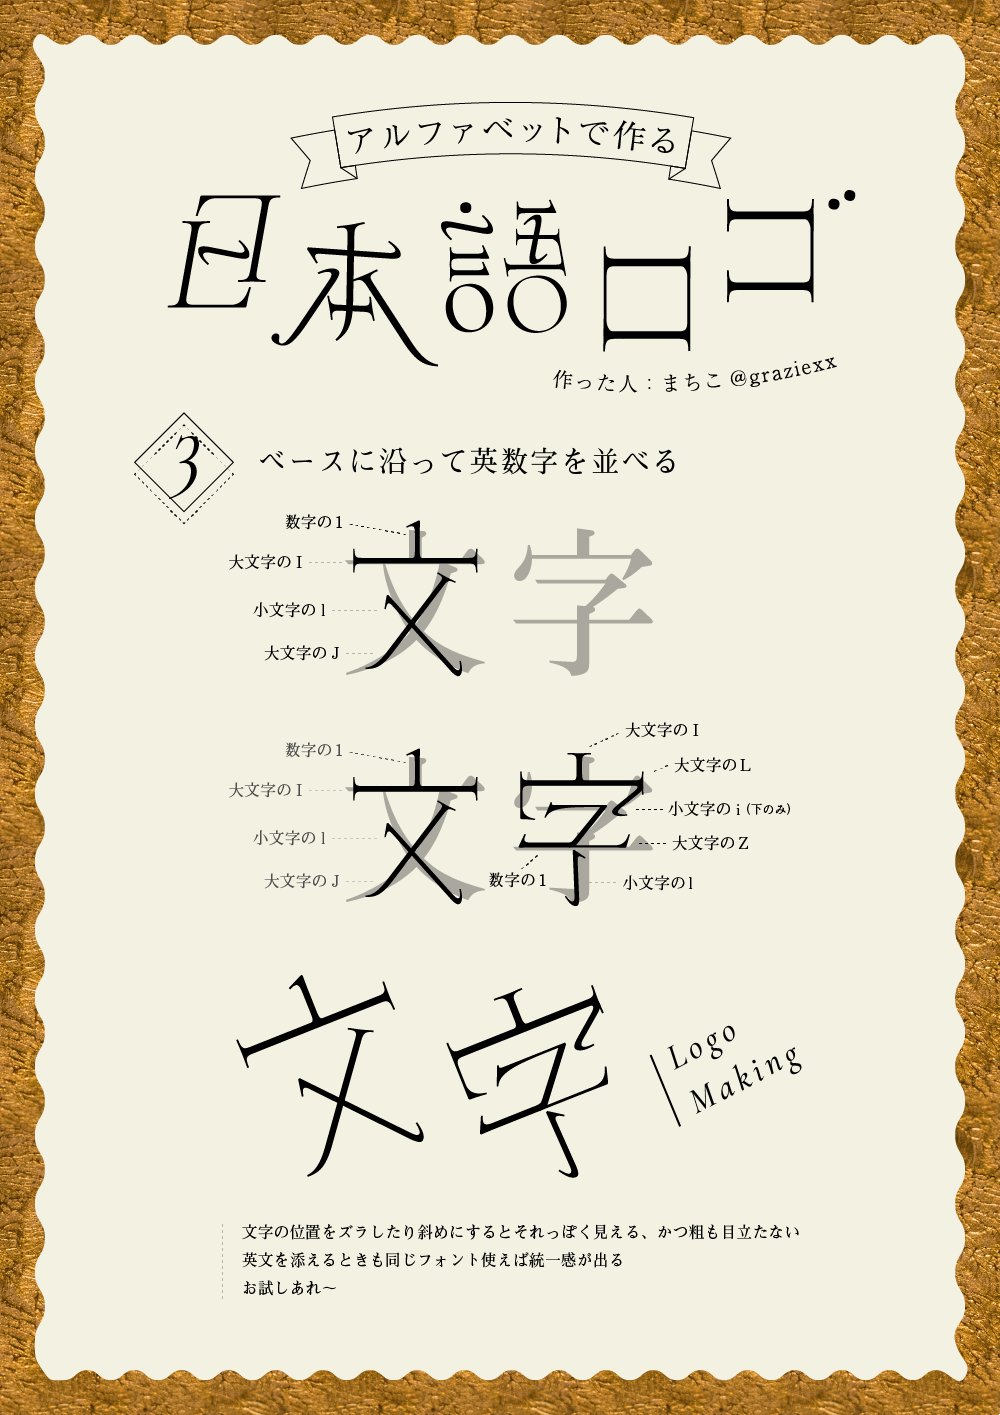 アルファベットで作る
日本語ロゴ
作った人：まちこ @graziexx
3
ベースに沿って英数字を並べる
数字の1
大文字の I
小文字の l
大文字の J
文字
数字の1
大文字の I
小文字の l
大文字の J
文字
大文字の I
大文字の L
小文字の i (下のみ)
大文字の Z
数字の1
小文字の l
文字
Logo
Making
文字の位置をズラしたり斜めにするとそれっぽく見える、かつ粗も目立たない
英文を添えるときも同じフォント使えば統一感が出る
お試しあれ〜